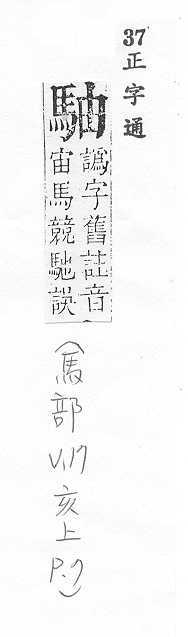 37正字通
馻
譌字舊註音
宙馬競馳誤
(馬部
V.17
亥上
P.9)